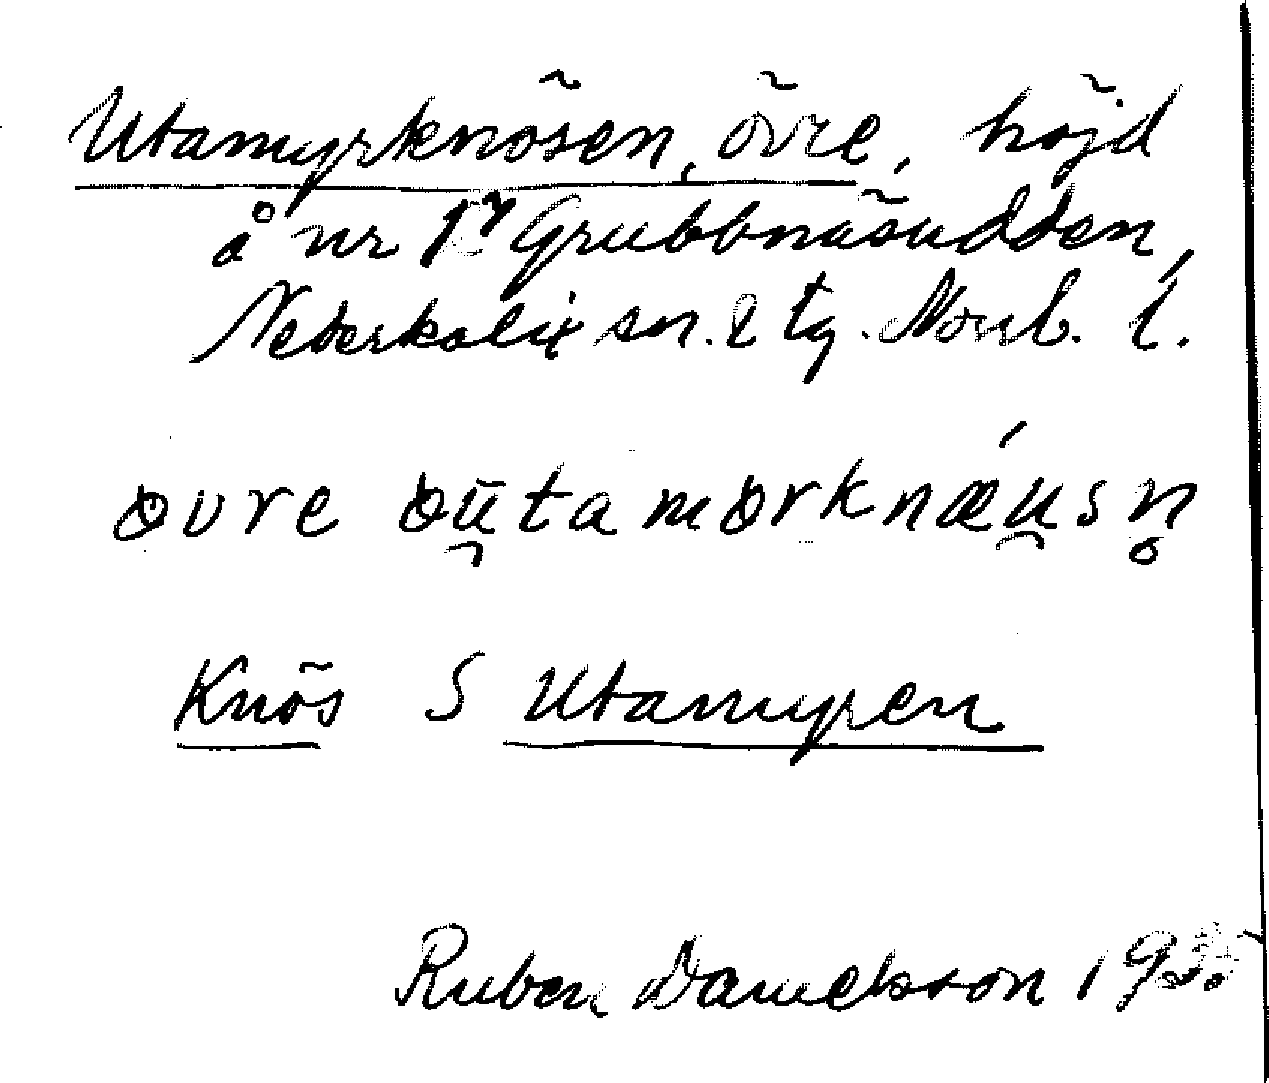 Utamyrknösen, övre, höjd
å nr 17 Grubbnäsudden,
Nederkalix sn. & tg. Norrb. l.
øvre øu̯tamørknǽu̯sn̥
Knös S Utamyren
Ruben Danielsson